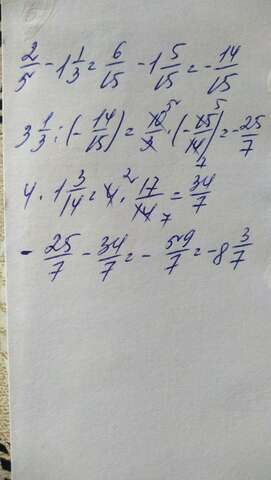 2/5 - 1 1/3 = 6/15 - 1 5/15 = - 14/15
3 1/3 : (- 14/15) = 10/3 · (- 15/14) = - 25/7
4 · 1 3/14 = 4 · 17/14 = 34/7
- 25/7 - 34/7 = - 59/7 = - 8 3/7